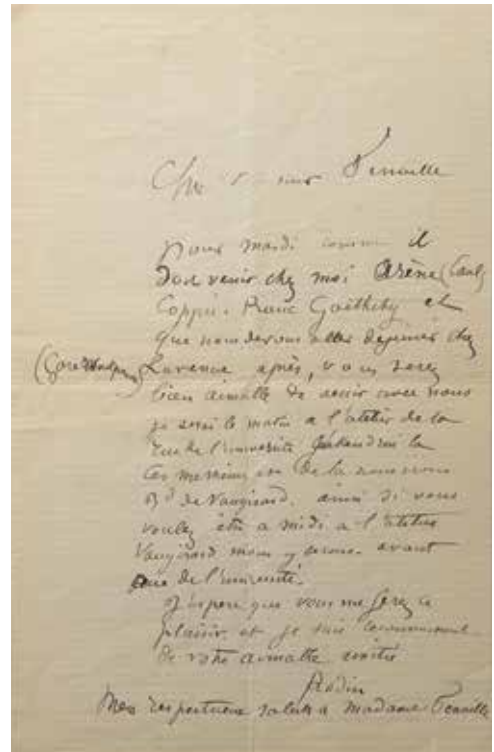 Cher Monsieur Fenaille
pour mardi comme il
doit venir chez moi Arène (Paul)
Coppée. Franc
que nous devons aller dejeuner chez
(Gare Montpar) Lavenue après, vous serez
bien aimable de venir avec nous
je serai le matin a l'atelier de la
rue de l'université j'attendrai la
ces messieurs et de la nous irons
Bd de Vaugirard. ainsi si vous
voulez être a midi a l'atelier
Vaugirard nous y serons. avant
rue de l'université.
J'espère que vous me ferez ce
plaisir et je suis
de votre aimable amitié
Rodin
Mes respectueux saluts a madame Fenaille